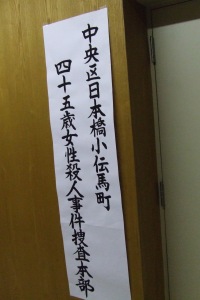 中央区日本橋小伝馬町
四十五歳女性殺人事件捜査本部